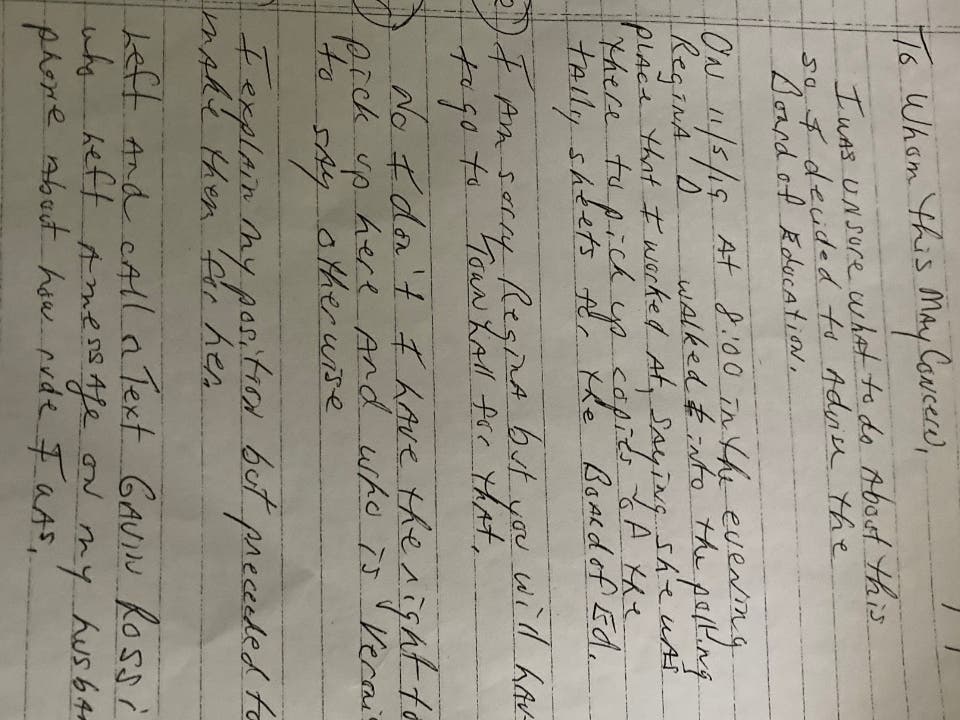 To Whom This May Concern,
I was unsure what to do About this
so I decided to Advise the
Board of Education.
ON 11/5/19 At 8:00 in the evening
Regina D walked into the polling
place that I worked At, saying she was
there to pick up copies of the
tally sheets for the Board of Ed.
I Am sorry Regina but you will hav
to go to Town hall for that.
No I don't I have the right to
pick up here And who is
to say otherwise
I explain my position but preceeded to
make them for her.
Left And call a Text Gavin Rossi
who left A message on my husban
phone About how rude I was.